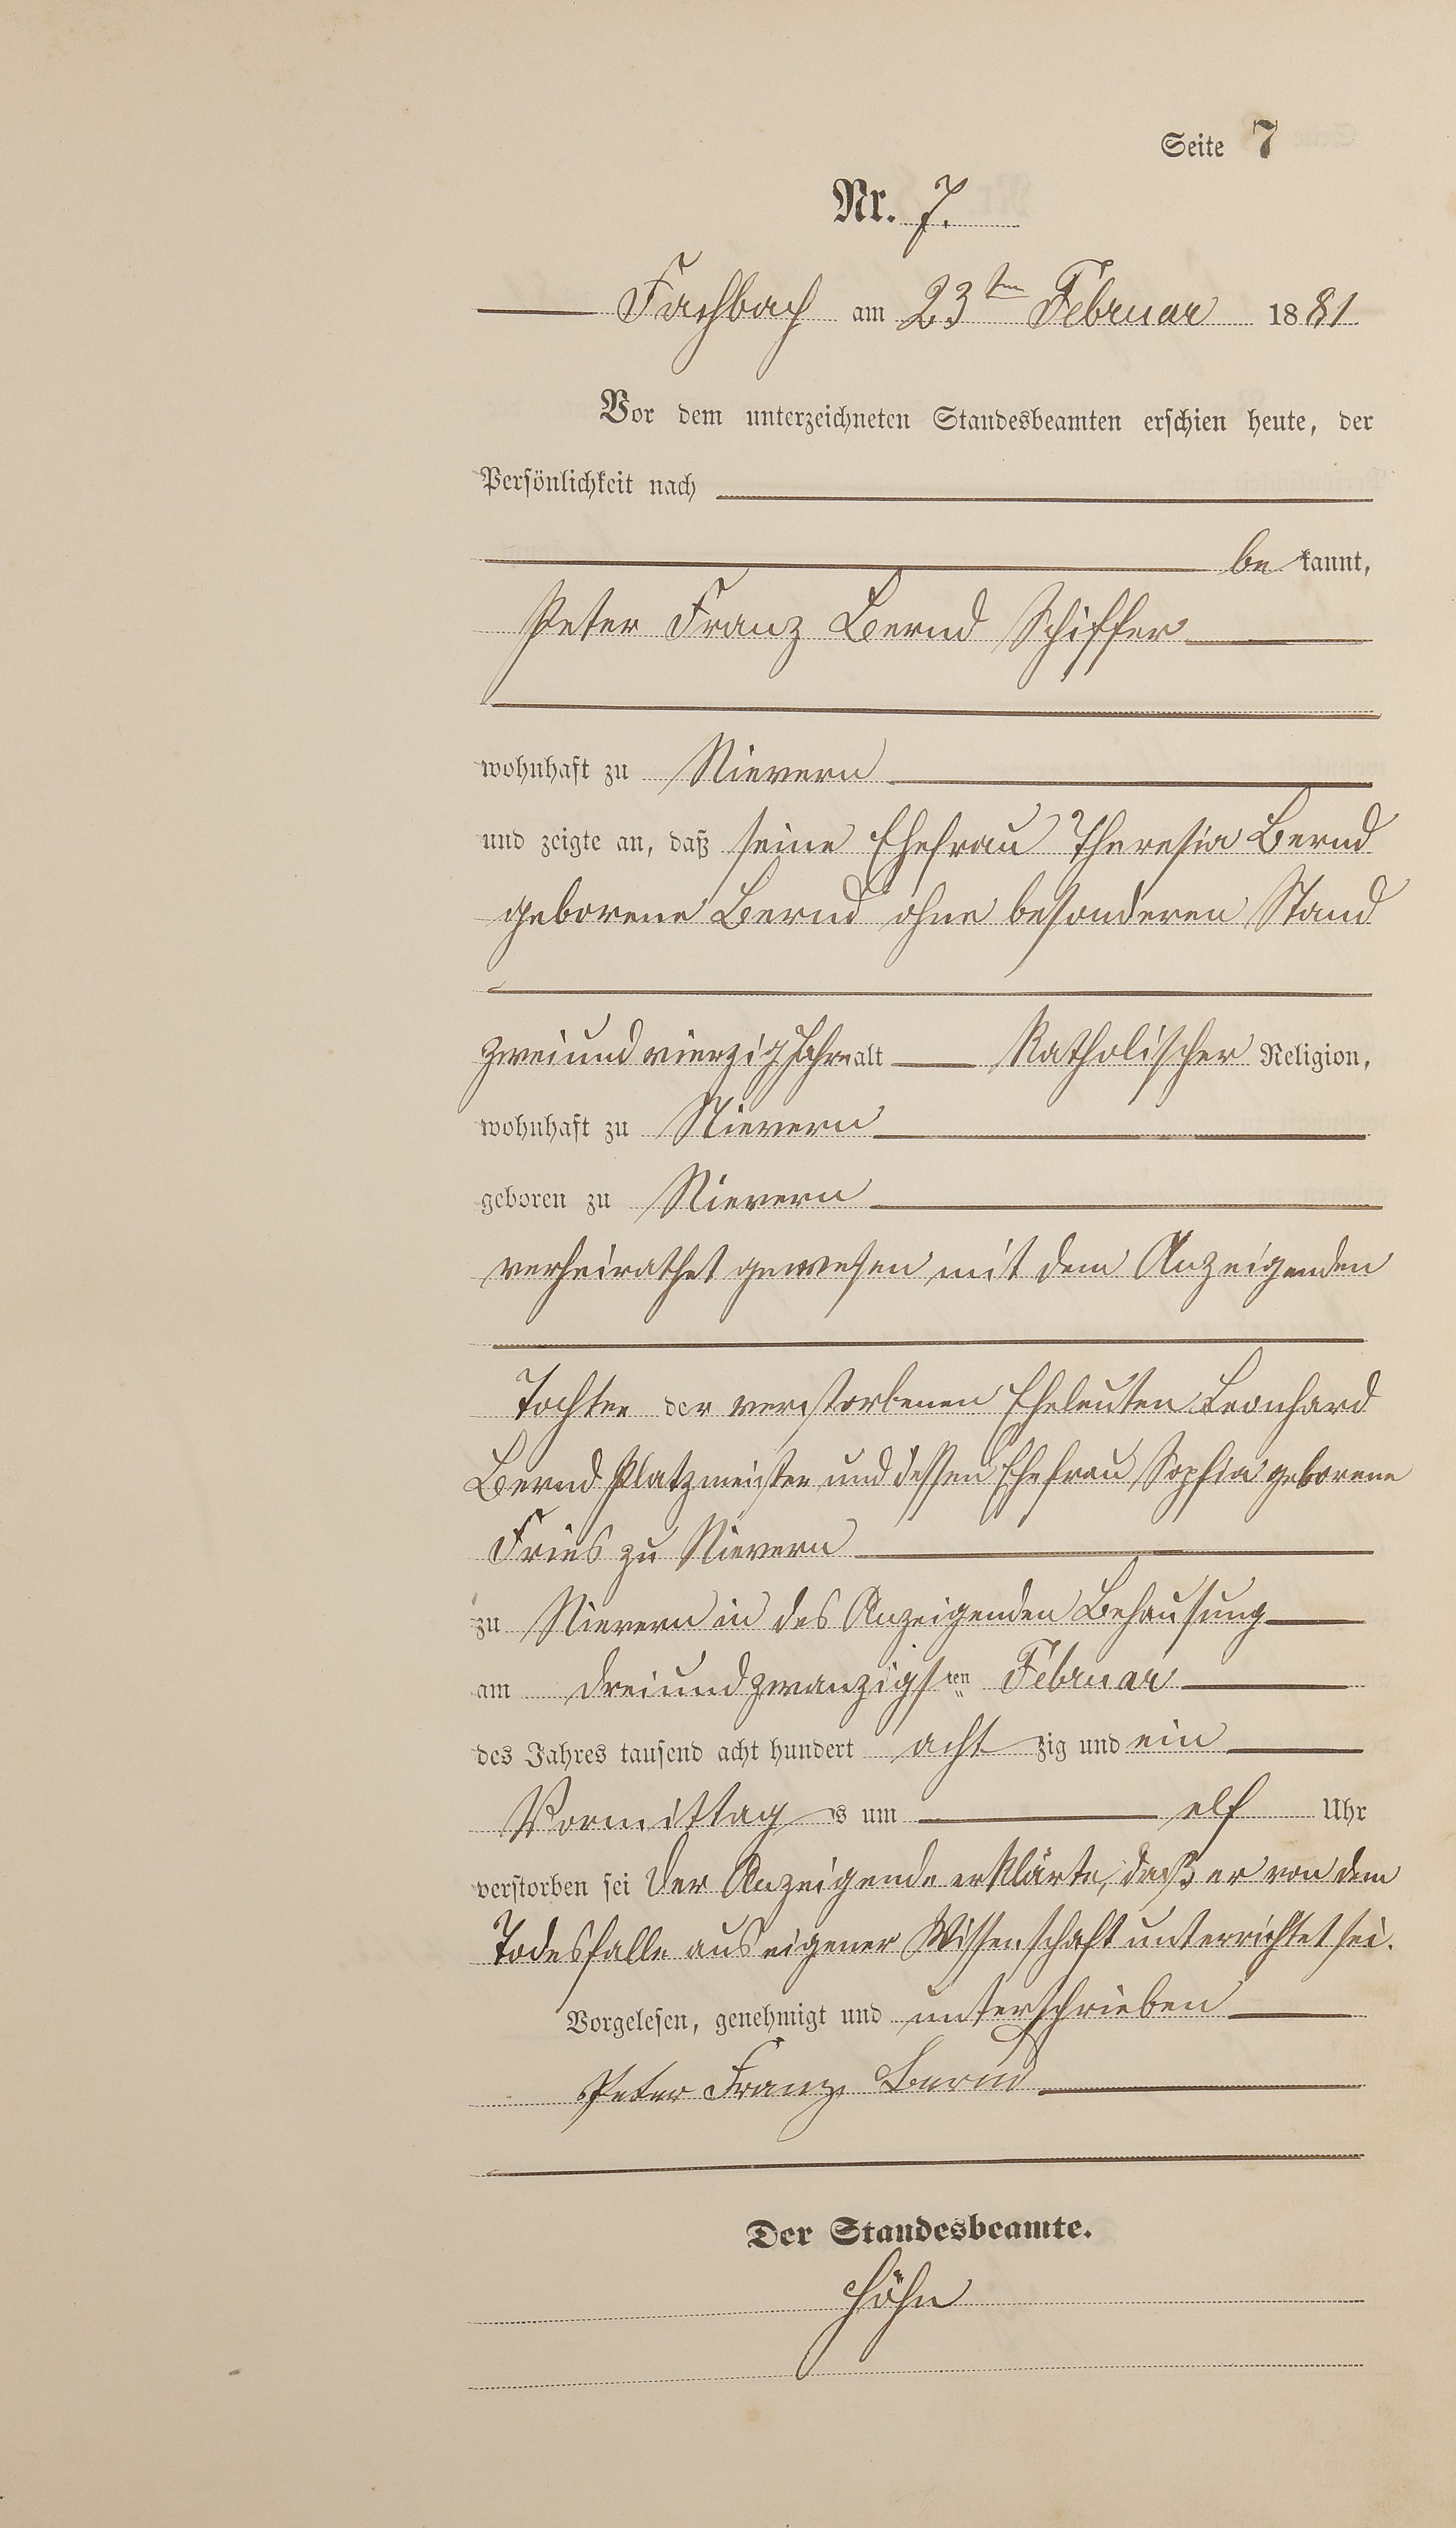 Seite 7
Nr. 7.
Fachbach am 23ten Februar 1881
Vor dem unterzeichneten Standesbeamten erschien heute, der
Persönlichkeit nach
be kannt,
Peter Franz Bernd Schiffer
wohnhaft zu Nievern
und zeigte an, daß seine Ehefrau Theresia Bernd
geborene Bernd ohne besonderen Stand
zweiundvierzig Jahre alt katholischer Religion,
wohnhaft zu Nievern
geboren zu Nievern
verheirathet gewesen mit dem Anzeigenden
Tochter der verstorbenen Eheleuten Leonhard
Bernd Platzmeister und dessen Ehefrau Sophia geborene
Fries zu Nievern
zu Nievern in des Anzeigenden Behausung
am dreiundzwanzigsten Februar
des Jahres tausend acht hundert acht zig und ein
Vormittag s um elf Uhr
verstorben sei Der Anzeigende erklärte, daß er von dem
Todesfalle aus eigener Wissenschaft unterrichtet sei.
Vorgelesen, genehmigt und unterschrieben
Peter Franz Bernd
Der Standesbeamte.
Höhn